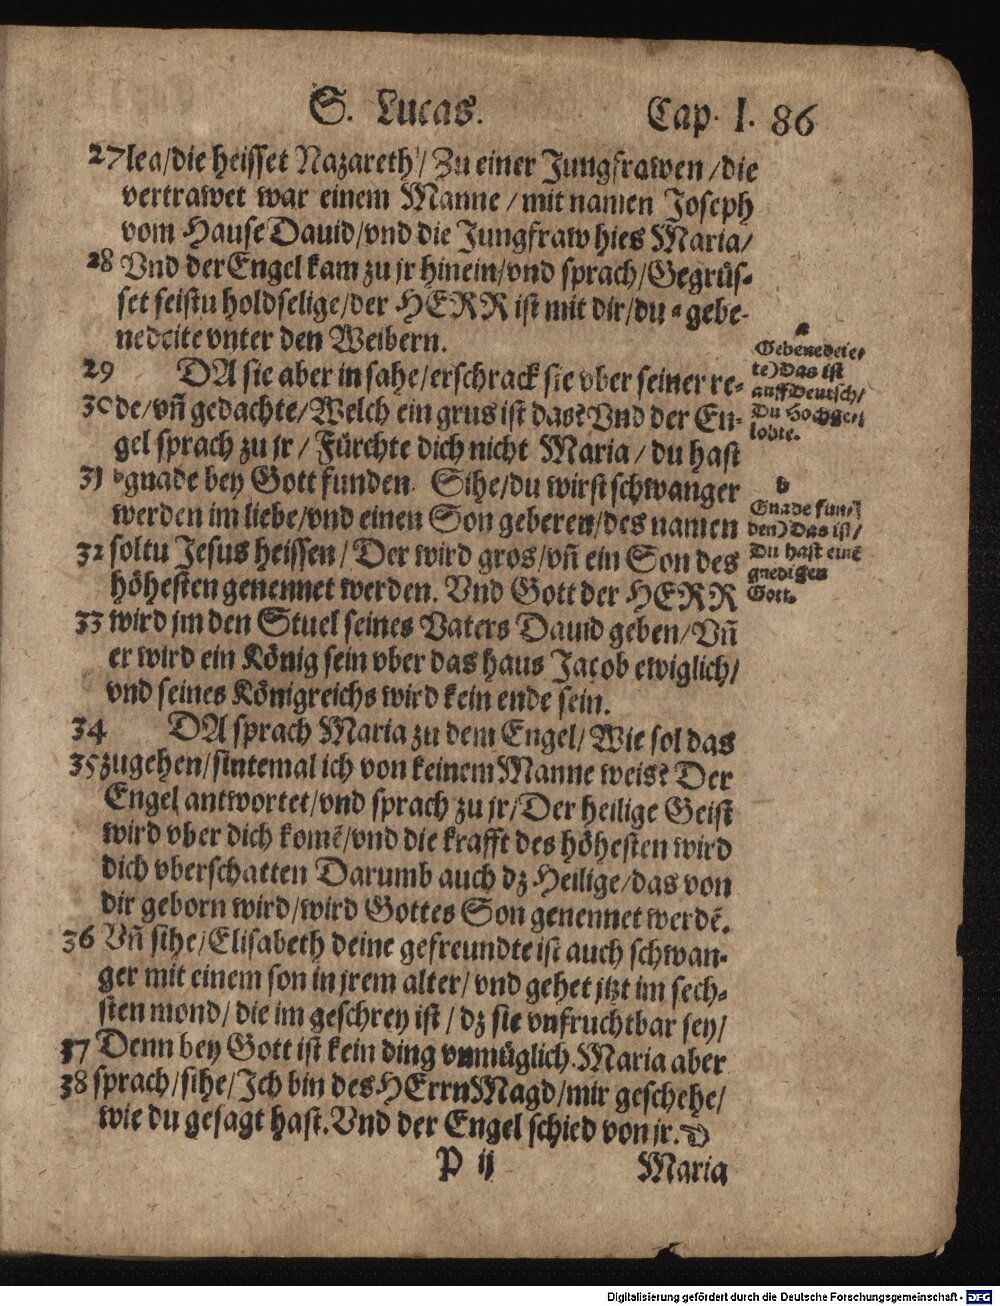 S. Lucas. Cap. I. 86
27 lea/die heisset Nazareth/Zu einer Jungfrawen/die
vertrawet war einem Manne/mit namen Joseph
vom Hause Dauid/vnd die Jungfraw hies Maria/
28 Vnd der Engel kam zu jr hinein/vnd sprach/Gegrüs-
set seistu holdselige/der HERR ist mit dir/du a gebe-
nedeite vnter den Weibern.
a
Gebenedeie-
te) Das ist
auff Deutsch/
Du Hochge-
lobte.
29 DA sie aber in sahe/erschrack sie vber seiner re-
30 de/vñ gedachte/Welch ein grus ist das? Vnd der En-
gel sprach zu jr/Fürchte dich nicht Maria/du hast
31 b gnade bey Gott funden. Sihe/du wirst schwanger
werden im liebe/vnd einen Son geberen/des namen
32 soltu Jesus heissen/Der wird gros/vñ ein Son des
höhesten genennet werden. Vnd Gott der HERR
b
Gnade fun-
den) Das ist/
Du hast einẽ
gnedigen
Gott.
33 wird jm den Stuel seines Vaters Dauid geben/Vñ
er wird ein König sein vber das haus Jacob ewiglich/
vnd seines Königreichs wird kein ende sein.
34 DA sprach Maria zu dem Engel/Wie sol das
35 zugehen/sintemal ich von keinem Manne weis? Der
Engel antwortet/vnd sprach zu jr/Der heilige Geist
wird vber dich komẽ/vnd die krafft des höhesten wird
dich vberschatten Darumb auch dz Heilige/das von
dir geborn wird/wird Gottes Son genennet werdẽ.
36 Vñ sihe/Elisabeth deine gefreundte ist auch schwan-
ger mit einem son in jrem alter/vnd gehet jtzt im sech-
sten mond/die im geschrey ist/dz sie vnfruchtbar sey/
37 Denn bey Gott ist kein ding vnmüglich. Maria aber
38 sprach/sihe/Ich bin des HErrn Magd/mir geschehe/
wie du gesagt hast. Vnd der Engel schied von jr.
P ij Maria
Digitalisierung gefördert durch die Deutsche Forschungsgemeinschaft - DFG